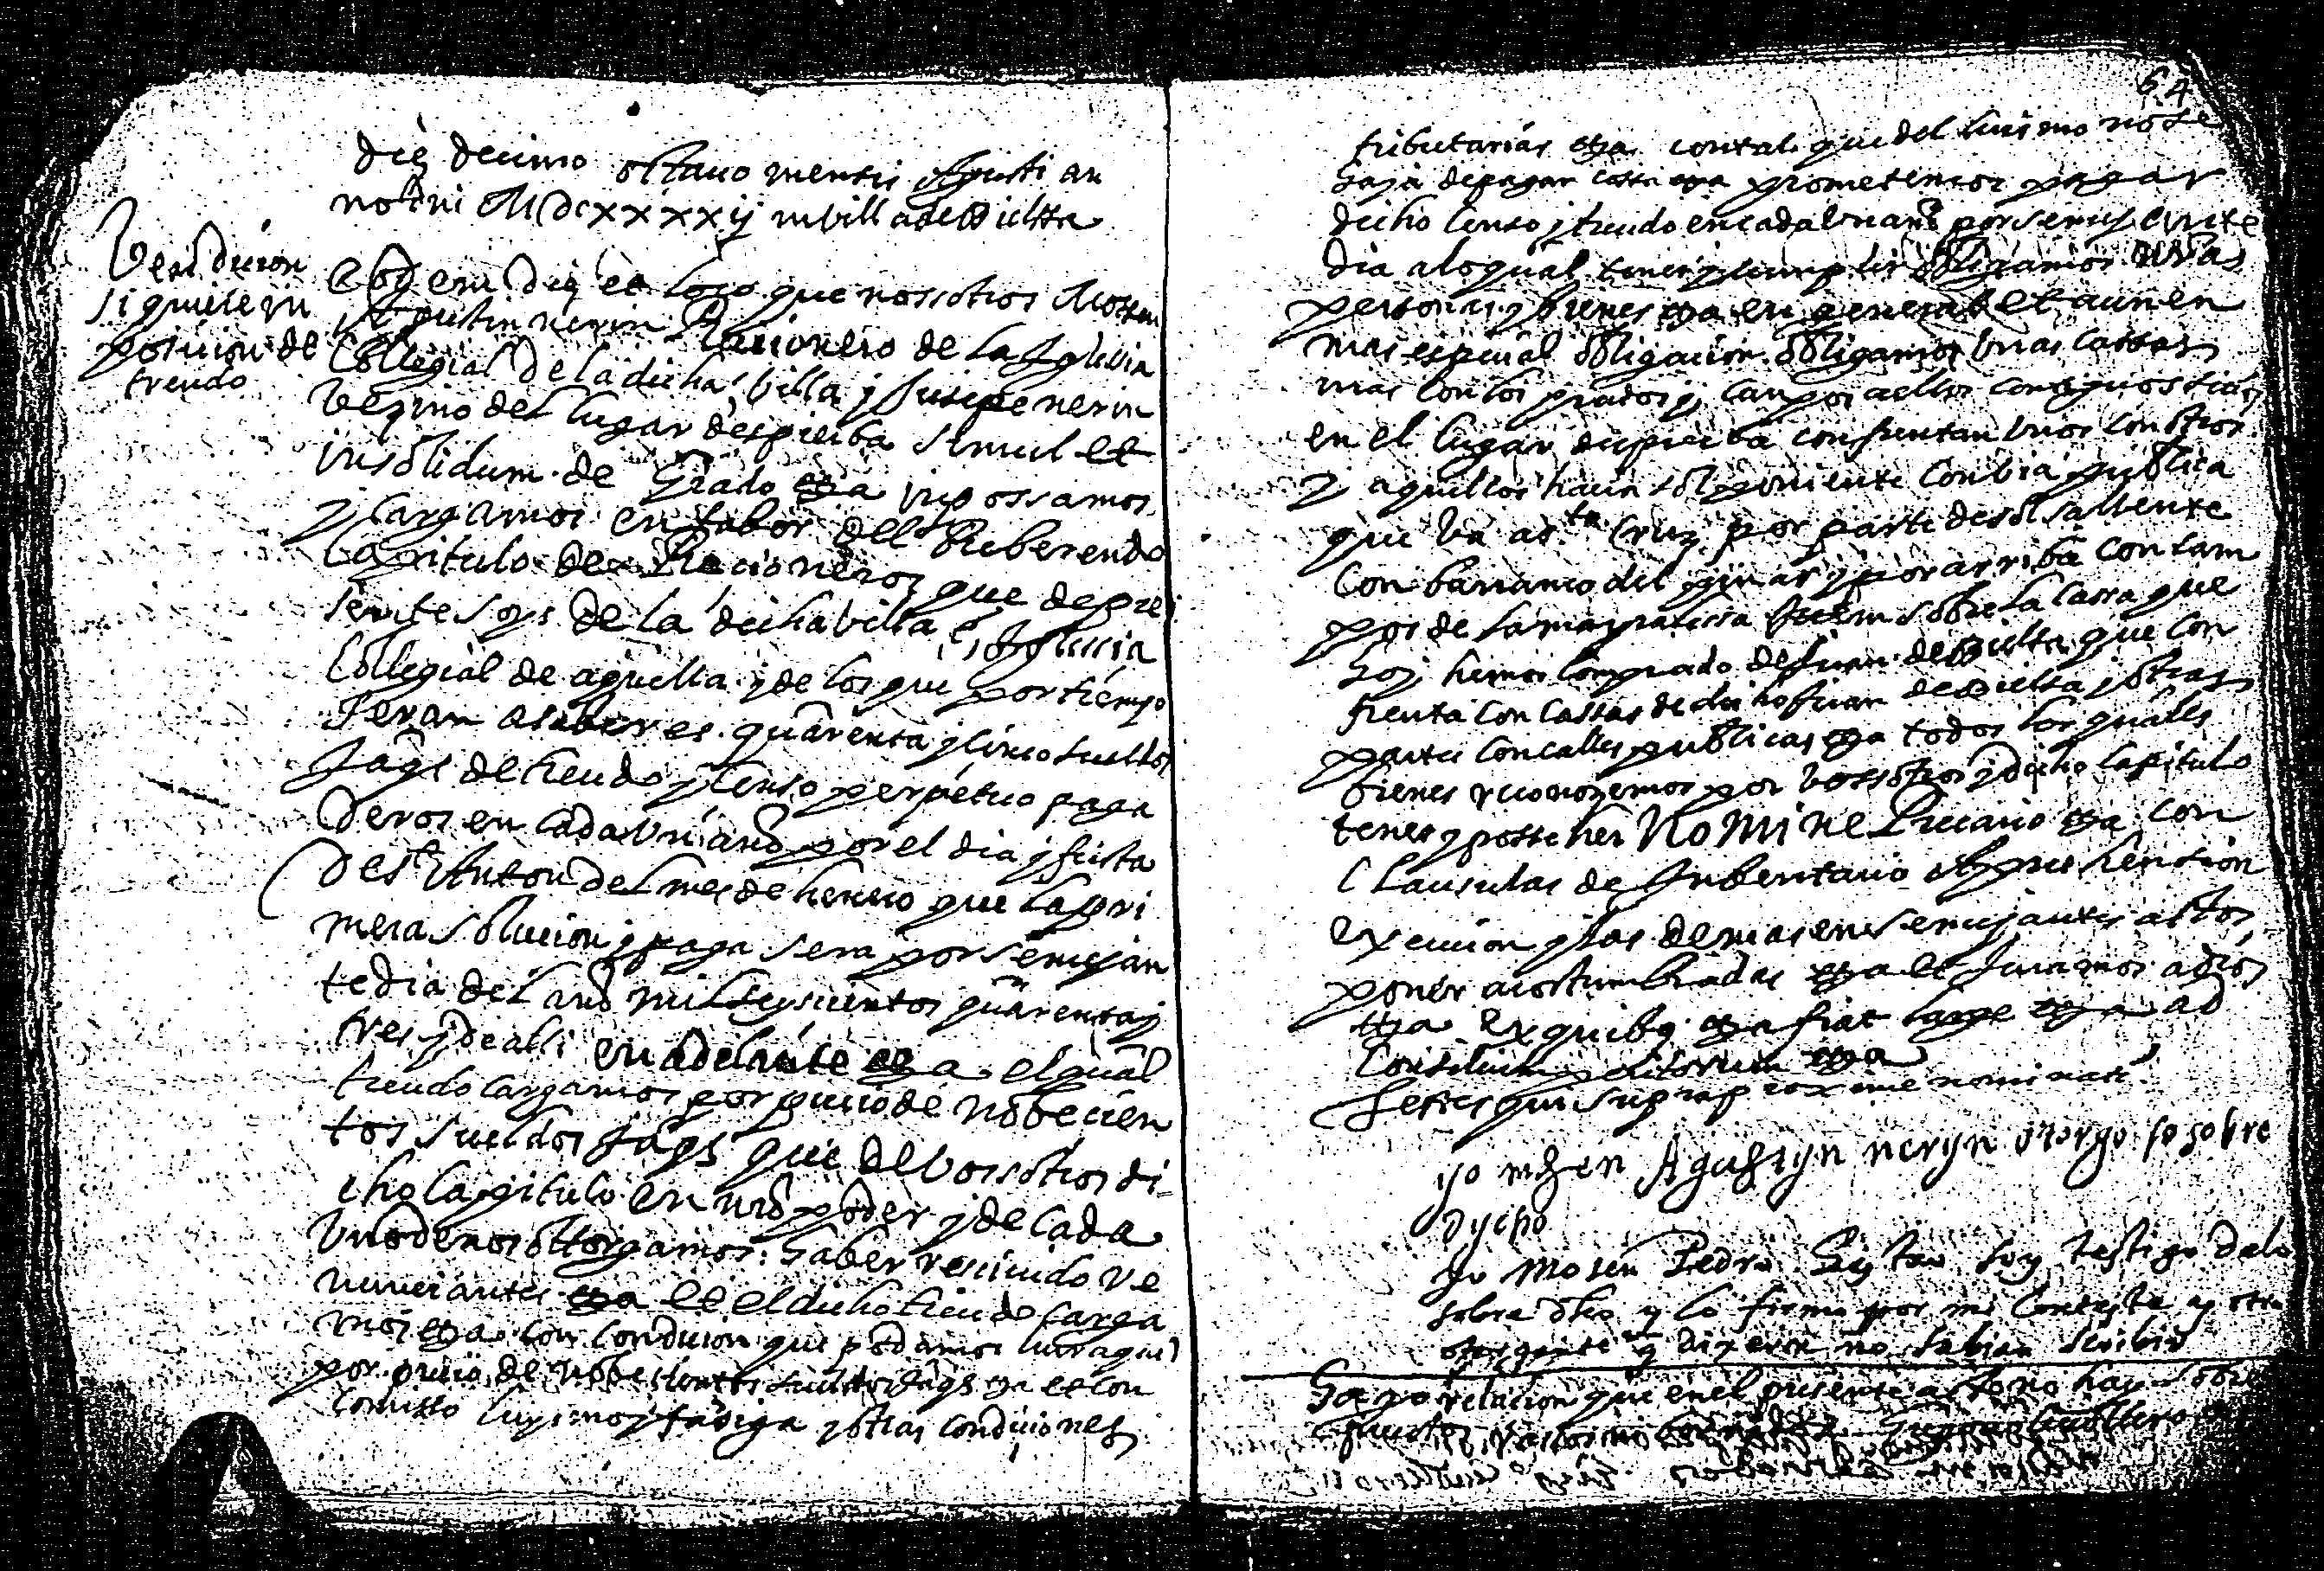 die decimo octauo mensis Agusti an
no dni MDcxxxxij in villa de Bielsa
Vendicion
si quiere im
posicion de
treudo
Eodem die et loco que nossotros Mossen
Agustin nerin Racionero de la Iglesia
Collegial de la dicha villa y Jusepe nerin
vezino del lugar despierba simul et
insolidum de Grado etta impossamos
y cargamos en fabor del Reberendo
Capitulo de Racioneros que de pre
sente soys de la dicha villa e Iglesia
Collegial de aquella y de los que por tiempo
seran a saber es quarenta y cinco sueldos
Jaqs de treudo y censo perpetuo paga
deros en cada vn año por el dia y fiesta
de st Anton del mes de henero que la pri
mera solucion y paga sera por semejan
te dia del año mil seyscientos quarenta y
tres y de alli en adelante etta el qual
treudo cargamos por precio de nobecien
tos sueldos Jaqs que de vossotros di
cho Capitulo en nro poder y de cada
vno de nos ottorgamos haber reciuido re
nunciantes etta et el dicho treudo carga
mos etta con condicion que podamos luir aquel
por precio de nobecientos sueldos Jaqs etta et con
comisso luysmo y fadiga y otras condiciones
64
tributarias etta con tal que del luismo no se
haya de pagar cossa etta prometemos pagar
dicho censo y treudo en cada vn año por semejante
dia a lo qual tener y cumplir obligamos nras
personas y bienes etta en general et aun en
mas especial obligacion obligamos vnas cassas
mas con los prados y campos a ellas contiguos sitias
en el lugar despierba confrentan vnos con otros
y aquellos hacia sol poniente con via publica
que va a sta Cruz por parte de sol saliente
con barranco del pinar y por arriba con cam
pos de la mayralessa Item sobre la cassa que
hoy hemos comprado de Juan de Bielsa que con
frenta con cassas de dicho Juan de Bielsa y otras
partes con calles publicas etta todos los quales
bienes reconozemos por vossotros y dicho Capitulo
tener y posseher Nomine Precario etta con
Clausulas de Inbentario Aprehension
execucion y las demas en semejantes actos
poner acostumbradas etta et Juramos a dios
etta ex quibus etta fiat large etta ad
Consilium peritorum etta
Testes qui supra proxime nominati
yo mosen Agustyn neryn otorgo lo sobre
dycho
yo Mosen Pedro soy testigo de lo
sobre dho y lo firmo por mi conteste y otro
otorgante q dixeron no sabian scribir
Hago relacion que en el presente acto no hay sobre
puestos